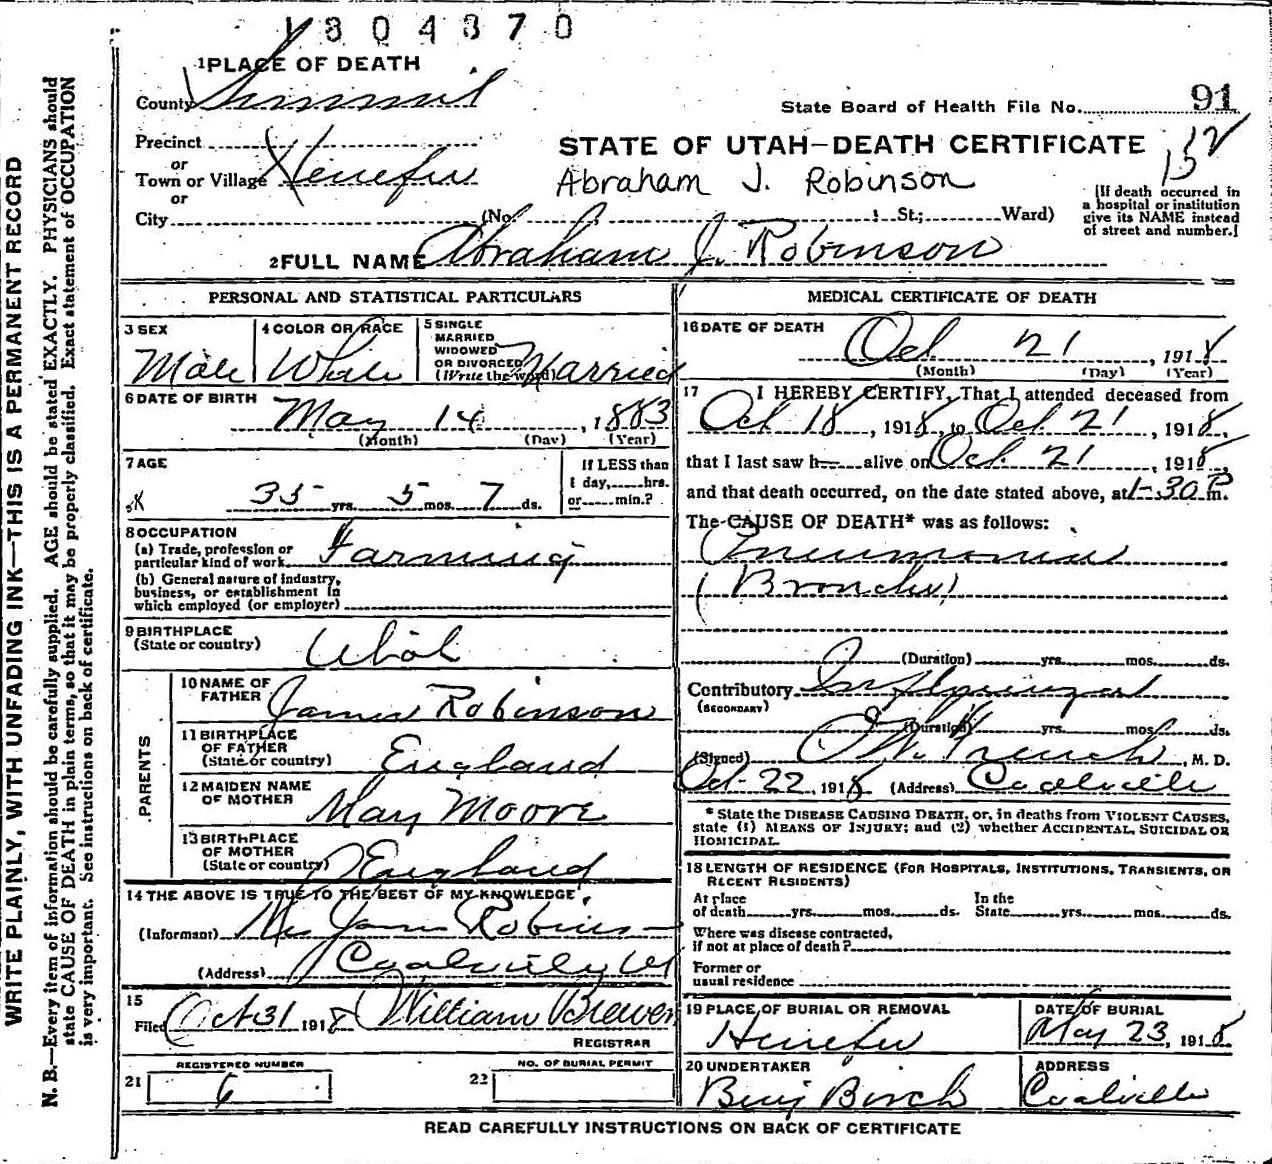 1804370
1 PLACE OF DEATH
County Summit
State Board of Health File No. 91
Precinct
or
Town or Village Henefer
or
City (No. St.; Ward)
STATE OF UTAH—DEATH CERTIFICATE
Abraham J. Robinson
[If death occurred in
a hospital or institution
give its NAME instead
of street and number.]
2 FULL NAME Abraham J. Robinson
PERSONAL AND STATISTICAL PARTICULARS
3 SEX Male
4 COLOR OR RACE White
5 SINGLE
MARRIED
WIDOWED
OR DIVORCED
(Write the word) Married
6 DATE OF BIRTH
May 14, 1883
(Month) (Day) (Year)
7 AGE
35 yrs. 5 mos. 7 ds.
If LESS than
1 day, hrs.
or min.?
8 OCCUPATION
(a) Trade, profession or
particular kind of work Farming
(b) General nature of industry,
business, or establishment in
which employed (or employer)
9 BIRTHPLACE
(State or country) Utah
PARENTS
10 NAME OF
FATHER James Robinson
11 BIRTHPLACE
OF FATHER
(State or country) England
12 MAIDEN NAME
OF MOTHER Mary Moore
13 BIRTHPLACE
OF MOTHER
(State or country) England
14 THE ABOVE IS TRUE TO THE BEST OF MY KNOWLEDGE
(Informant) Robinson
(Address) Coalville Ut
15
Filed Oct 31 1918 William Brewer
REGISTRAR
21 REGISTERED NUMBER
6
22 NO. OF BURIAL PERMIT
MEDICAL CERTIFICATE OF DEATH
16 DATE OF DEATH
Oct 21, 1918
(Month) (Day) (Year)
17 I HEREBY CERTIFY, That I attended deceased from
Oct 18, 1918, to Oct 21, 1918,
that I last saw h alive on Oct. 21, 1918,
and that death occurred, on the date stated above, at 1-30 P m.
The CAUSE OF DEATH* was as follows:
Pneumonia
(Broncho)
(Duration) yrs. mos. ds.
Contributory Influenza
(SECONDARY)
(Duration) yrs. mos. ds.
(Signed) French, M. D.
Oct-22, 1918 (Address) Coalville
* State the DISEASE CAUSING DEATH, or, in deaths from VIOLENT CAUSES,
state (1) MEANS OF INJURY; and (2) whether ACCIDENTAL, SUICIDAL OR
HOMICIDAL.
18 LENGTH OF RESIDENCE (FOR HOSPITALS, INSTITUTIONS, TRANSIENTS, OR
RECENT RESIDENTS)
At place
of death yrs. mos. ds.
In the
State yrs. mos. ds.
Where was disease contracted,
if not at place of death?
Former or
usual residence
19 PLACE OF BURIAL OR REMOVAL
Henefer
DATE OF BURIAL
May 23, 1918
20 UNDERTAKER
Benj Birch
ADDRESS
Coalville
READ CAREFULLY INSTRUCTIONS ON BACK OF CERTIFICATE
WRITE PLAINLY, WITH UNFADING INK—THIS IS A PERMANENT RECORD
N. B.—Every item of information should be carefully supplied. AGE should be stated EXACTLY. PHYSICIANS should
state CAUSE OF DEATH in plain terms, so that it may be properly classified. Exact statement of OCCUPATION
is very important. See instructions on back of certificate.